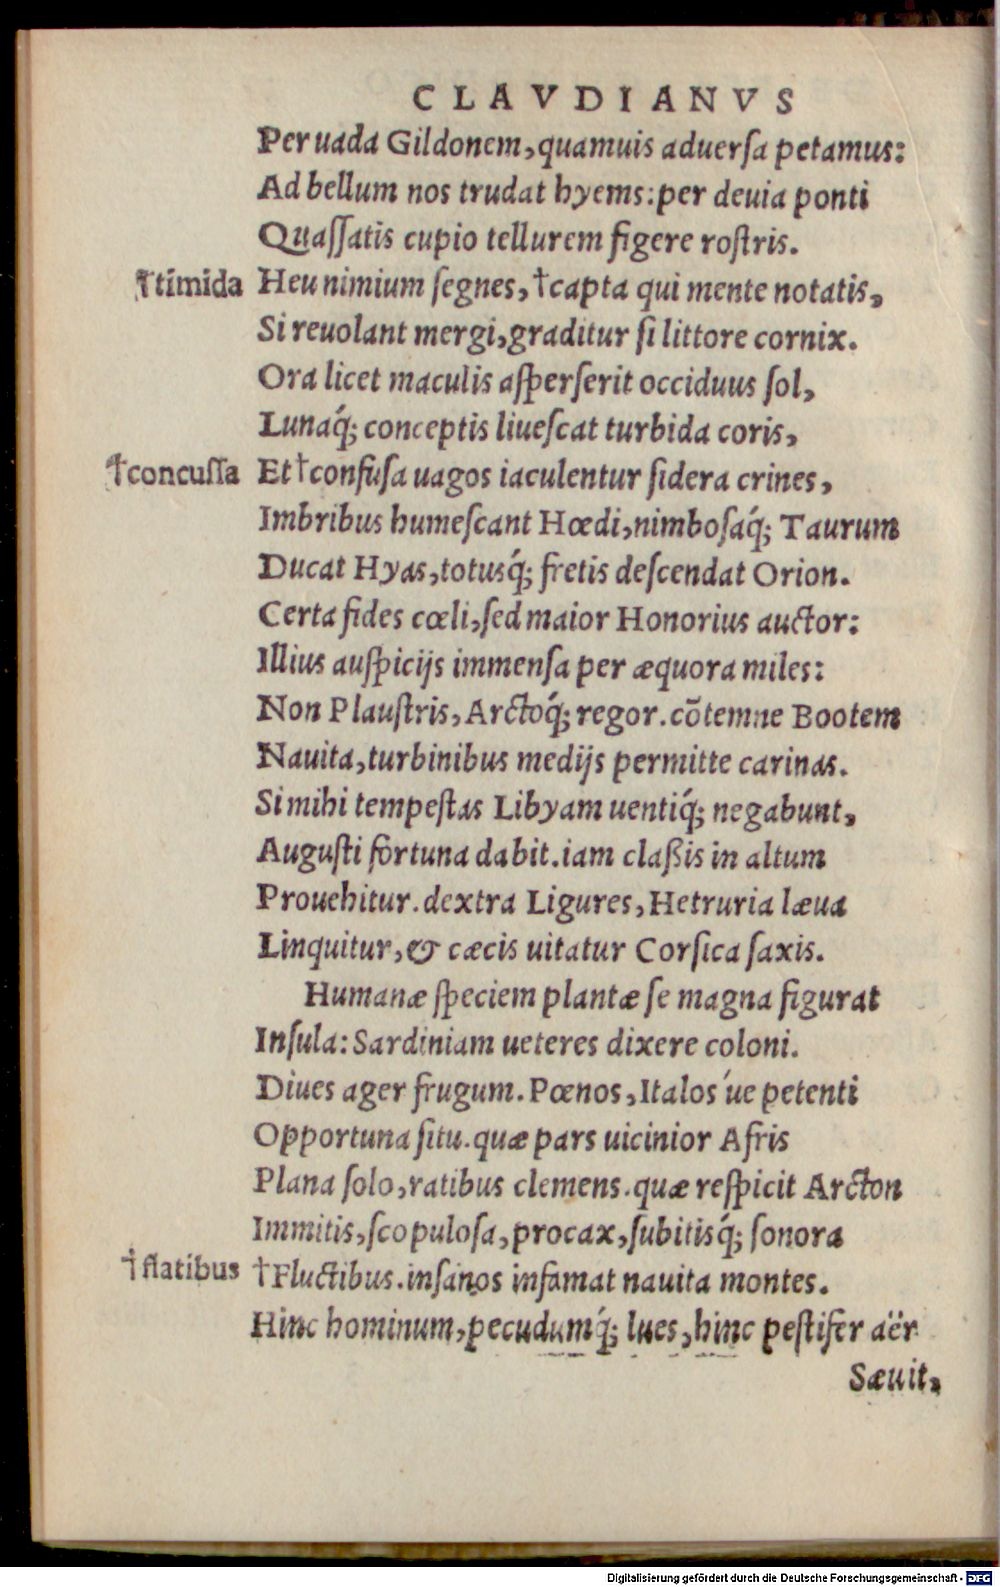 CLAVDIANVS
Per uada Gildonem, quamuis aduerſa petamus:
Ad bellum nos trudat hyems: per deuia ponti
Quaſſatis cupio tellurem figere roſtris.
†timida Heu nimium ſegnes, †capta qui mente notatis,
Si reuolant mergi, graditur ſi littore cornix.
Ora licet maculis aſperſerit occiduus ſol,
Lunaq́; conceptis liueſcat turbida coris,
†concuſſa Et †confuſa uagos iaculentur ſidera crines,
Imbribus humeſcant Hœdi, nimboſaq́; Taurum
Ducat Hyas, totusq́; fretis deſcendat Orion.
Certa fides cœli, ſed maior Honorius auctor:
Illius auſpicijs immenſa per æquora miles:
Non Plauſtris, Arctoq́; regor. cõtemne Bootem
Nauita, turbinibus medijs permitte carinas.
Si mihi tempeſtas Libyam uentiq́; negabunt,
Auguſti fortuna dabit. iam claßis in altum
Prouehitur. dextra Ligures, Hetruria læua
Linquitur, & cæcis uitatur Corſica ſaxis.
Humanæ ſpeciem plantæ ſe magna figurat
Inſula: Sardiniam ueteres dixere coloni.
Diues ager frugum. Pœnos, Italos úe petenti
Opportuna ſitu. quæ pars uicinior Afris
Plana ſolo, ratibus clemens. quæ reſpicit Arcton
Immitis, ſcopuloſa, procax, ſubitisq́; ſonora
†flatibus †Fluctibus. inſanos infamat nauita montes.
Hinc hominum, pecudumq́; lues, hinc peſtifer aër
Sæuit,
Digitalisierung gefördert durch die Deutsche Forschungsgemeinschaft - DFG